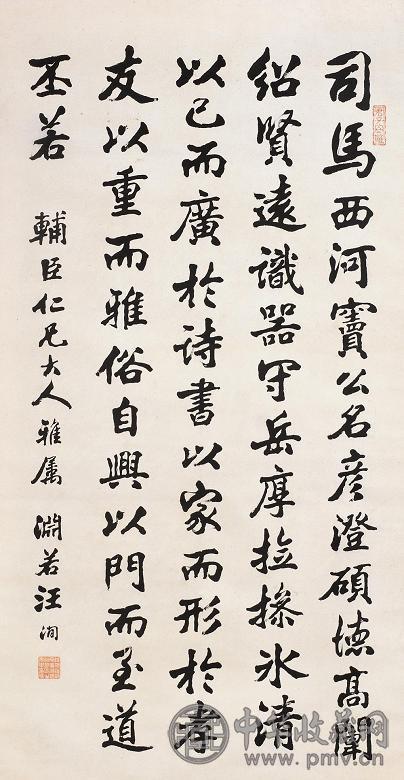 司馬西河竇公名彦澄碩德高闡
紹賢遠識器守岳厚撿操冰清
以己而廣於詩書以家而形於孝
友以重而雅俗自興以門而至道
丕若
輔臣仁兄大人雅屬 淵若汪洵
中华收藏网
www.pmv.cn